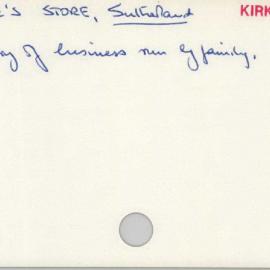 E'S STORE, Sutherland KIRK
ay of business run by family.